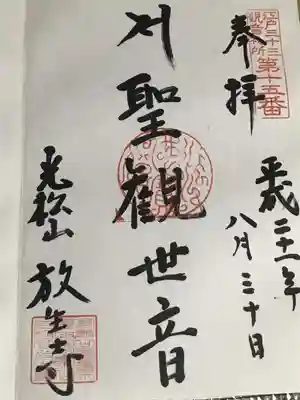 江戸三十三
観音札所
第十五番
奉拝
平成二十一年
八月三十日
聖観世音
光松山 放生寺